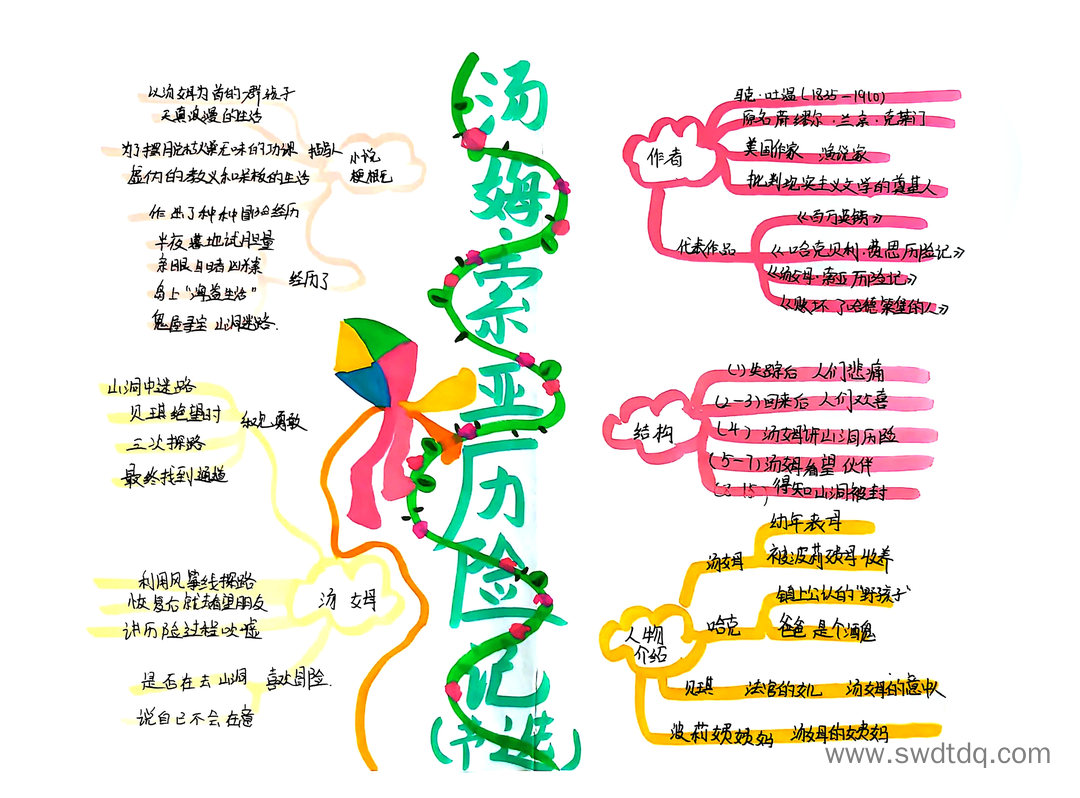 汤姆·索亚历险记
(节选)
以汤姆为首的一群孩子
天真浪漫的生活
为了摆脱枯燥无味的功课
虚伪的教义和呆板的生活
描写
小说
梗概
作出了种种冒险经历
半夜墓地试胆量
亲眼目睹凶案
岛上“海盗生活”
鬼屋寻宝 山洞迷路
经历了
山洞中迷路
贝琪绝望时
三次探路
最终找到通道
勇敢
利用风筝线探路
恢复后就去看望朋友
讲历险过程吹嘘
是否在去山洞
喜欢冒险
说自己不会在意
汤姆
作者
马克·吐温(1835-1910)
原名 萨缪尔·兰亨·克莱门
美国作家 演说家
批判现实主义文学的奠基人
代表作品
《百万英镑》
《哈克贝利·费恩历险记》
《汤姆·索亚历险记》
《败坏了哈德莱堡的人》
结构
(1)失踪后 人们悲痛
(2-3)回来后 人们欢喜
(4) 汤姆讲山洞历险
(5-7)汤姆看望伙伴
得知山洞被封
人物
介绍
汤姆
幼年丧母
被波莉姨母收养
哈克
镇上公认的“野孩子”
爸爸是个酒鬼
贝琪 法官的女儿 汤姆的意中人
波莉姨妈 汤姆的姨妈
www.swdtdq.com